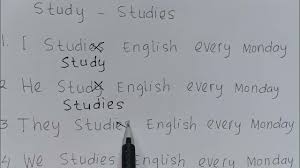 Study - Studies
1. I Studies English every Monday
Study
2 He Study English every Monday
Studies
3 They Studies English every Monday
4 We Studies English every Monday